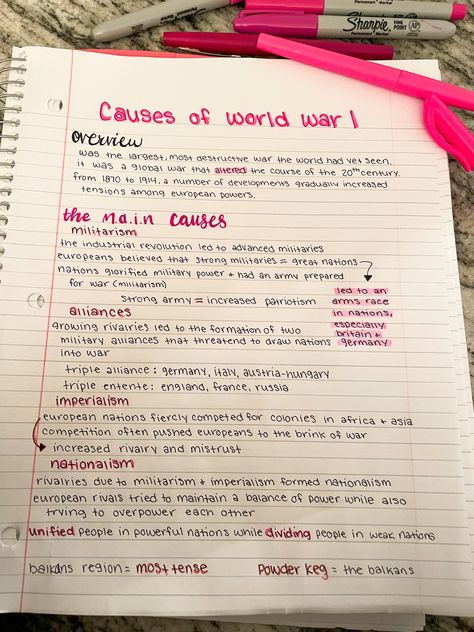 Sharpie
FINE POINT
AP
Permanent Marker
causes of world war I
overview
was the largest, most destructive war the world had yet seen.
it was a global war that altered the course of the 20th century.
from 1870 to 1914, a number of developments gradually increased
tensions among european powers.
the m.a.i.n causes
militarism
the industrial revolution led to advanced militaries
europeans believed that strong militaries = great nations
nations glorified military power + had an army prepared
for war (militarism)
strong army = increased patriotism
led to an
arms race
in nations,
especially
britain +
germany
alliances
growing rivalries led to the formation of two
military alliances that threatend to draw nations
into war
triple alliance: germany, italy, austria-hungary
triple entente: england, france, russia
imperialism
european nations fiercly competed for colonies in africa + asia
competition often pushed europeans to the brink of war
increased rivalry and mistrust
nationalism
rivalries due to militarism + imperialism formed nationalism
european rivals tried to maintain a balance of power while also
trying to overpower each other
unified people in powerful nations while dividing people in weak nations
balkans region = most tense powder keg = the balkans